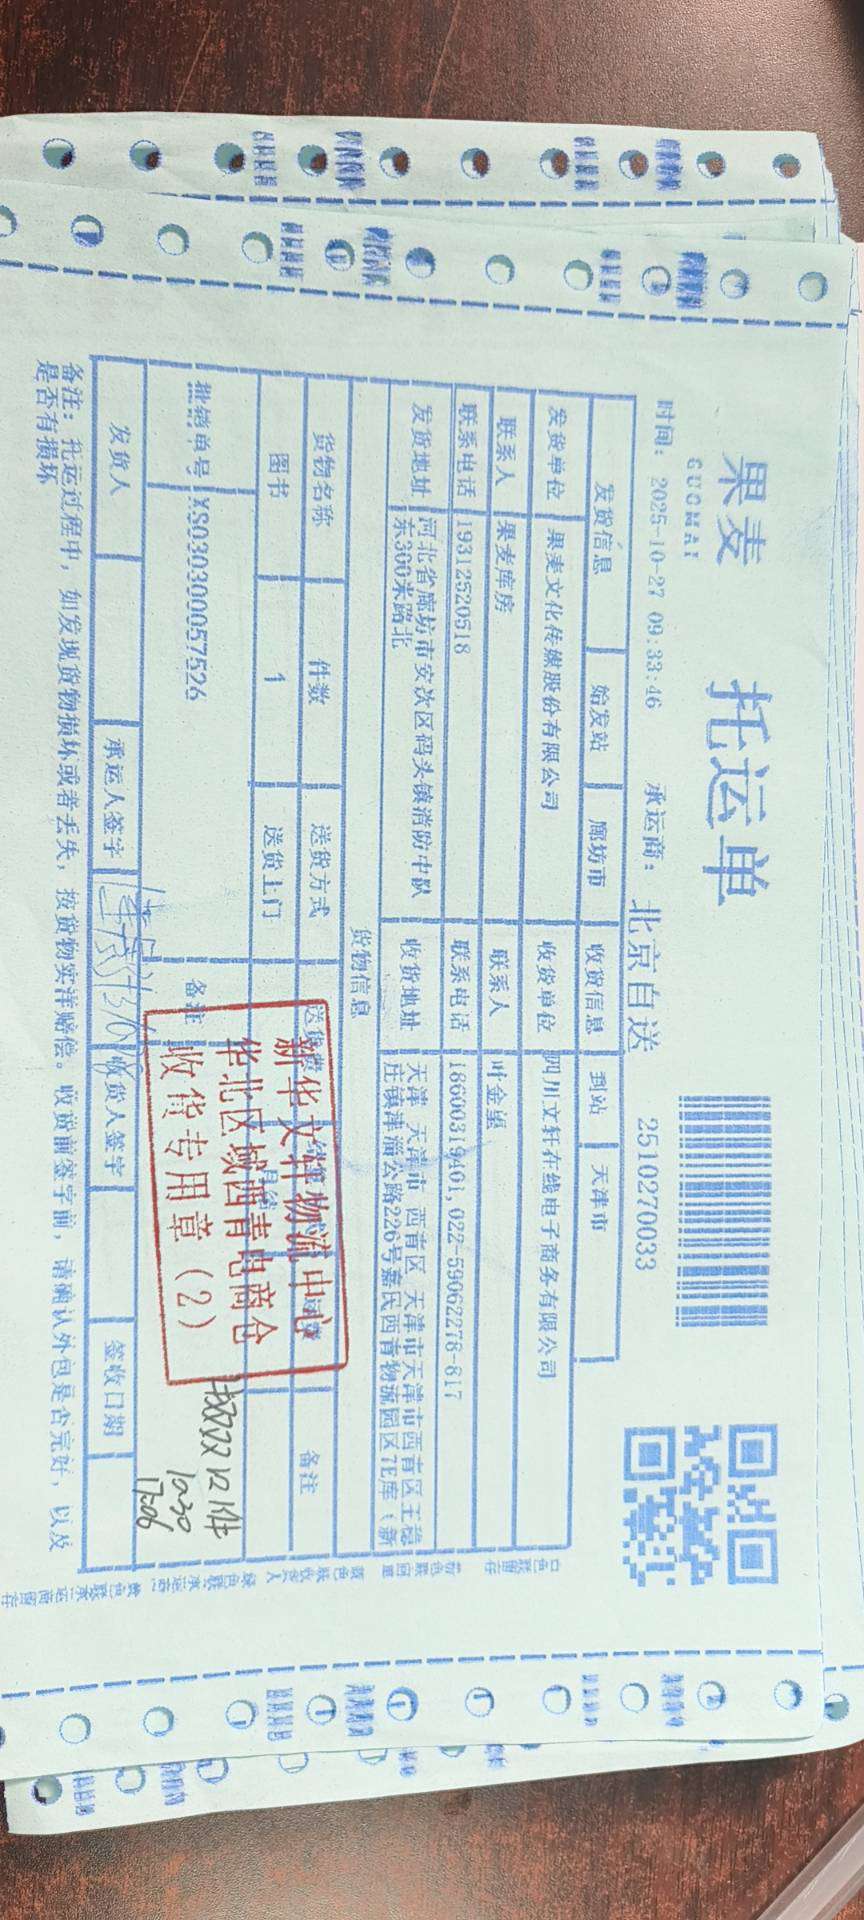 果麦
GUOMAI
托运单
时间: 2025-10-27 09:33:46 承运商: 北京自送 2510270033
发货信息 始发站 廊坊市 收货信息 到站 天津市
发货单位 果麦文化传媒股份有限公司 收货单位 四川文轩在线电子商务有限公司
联系人 果麦库房 联系人 叶金星
联系电话 19312520518 联系电话 18600319401,022-59062278-817
发货地址 河北省廊坊市安次区码头镇消防中队东300米路北 收货地址 天津 天津市 西青区 天津市天津市西青区王稳庄镇津淄公路226号嘉民西青物流园区7E库(新
货物信息
货物名称 件数 送货方式 送货费 备注
图书 1 送货上门
批销单号 XS0303000057526 备注
新华文轩物流中心
华北区域西青电商仓
收货专用章(2)
10.30
17:06
发货人 承运人签字 收货人签字 签收日期
备注: 托运过程中, 如发现货物损坏或者丢失, 按货物实洋赔偿。收货前签字前, 请确认外包是否完好, 以及
是否有损坏